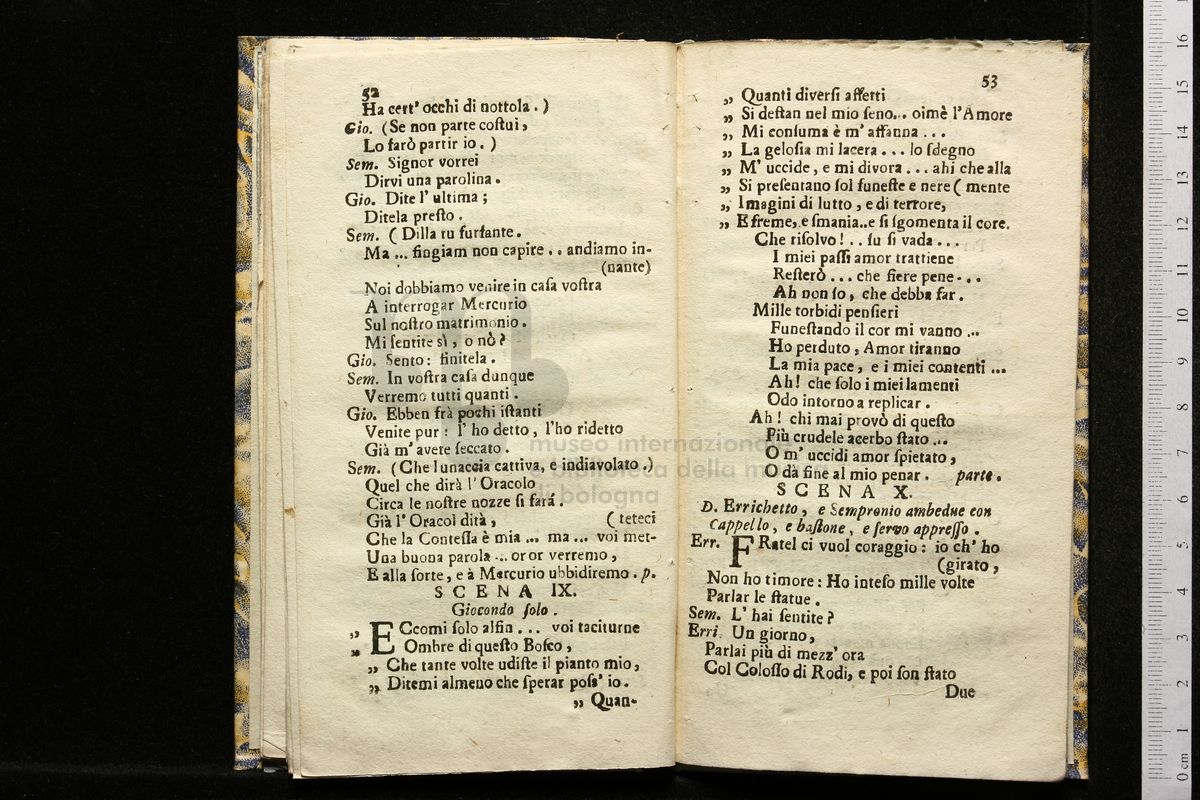 52
Ha cert' occhi di nottola . )
Gio. (Se non parte coſtui,
Lo farò partir io. )
Sem. Signor vorrei
Dirvi una parolina.
Gio. Dite l' ultima ;
Ditela preſto .
Sem. ( Dilla tu furfante.
Ma ... fingiam non capire .. andiamo in-
(nante)
Noi dobbiamo venire in caſa voſtra
A interrogar Mercurio
Sul noſtro matrimonio.
Mi ſentite sì , o nò ?
Gio. Sento: finitela.
Sem. In voſtra caſa dunque
Verremo tutti quanti .
Gio. Ebben frà pochi iſtanti
Venite pur : l' ho detto , l'ho ridetto
Già m' avete ſeccato .
Sem. (Che lunaccia cattiva, e indiavolato .)
Quel che dirà l' Oracolo
Circa le noſtre nozze ſi fará.
Già l' Oracol dità ,	( teteci
Che la Conteſſa è mia ... ma ... voi met-
Una buona parola ... or or verremo ,
E alla ſorte, e à Mercurio ubbidiremo . p.
SCENA IX.
Giocondo ſolo .
„ ECcomi ſolo alfin ... voi taciturne
„ Ombre di queſto Boſco ,
„ Che tante volte udiſte il pianto mio,
„ Ditemi almeno che ſperar poſs' io.
„ Quan-
53
„ Quanti diverſi affetti
„ Si deſtan nel mio ſeno... oimè l'Amore
„ Mi conſuma è m' affanna ...
„ La geloſia mi lacera ... lo ſdegno
„ M' uccide , e mi divora ... ahi che alla
„ Si preſentano ſol funeſte e nere ( mente
„ Imagini di lutto , e di terrore,
„ E freme, e ſmania..e ſi ſgomenta il core.
Che riſolvo ! .. ſu ſi vada ...
I miei paſſi amor trattiene
Reſterò ... che fiere pene ...
Ah non ſo, che debba far.
Mille torbidi penſieri
Funeſtando il cor mi vanno ...
Ho perduto , Amor tiranno
La mia pace , e i miei contenti ...
Ah! che ſolo i miei lamenti
Odo intorno a replicar .
Ah ! chi mai provò di queſto
Più crudele acerbo ſtato ...
O m' uccidi amor ſpietato ,
O dà fine al mio penar . parte.
SCENA X.
D. Errichetto, e Sempronio ambedue con
Cappello, e baſtone, e ſervo appreſſo .
Err. FRatel ci vuol coraggio : io ch' ho
(girato ,
Non ho timore : Ho inteſo mille volte
Parlar le ſtatue .
Sem. L' hai ſentite ?
Erri. Un giorno,
Parlai più di mezz' ora
Col Coloſſo di Rodi, e poi ſon ſtato
Due
museo internazionale
biblioteca della musica
di bologna